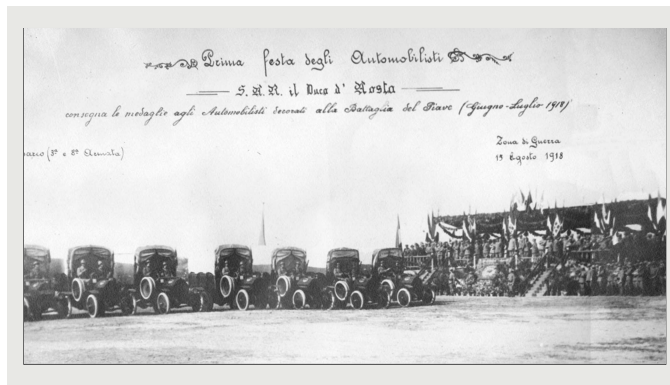 Prima festa degli Automobilisti
S. A. R. il Duca d' Aosta
consegna le medaglie agli Automobilisti decorati alla Battaglia del Piave (Giugno-Luglio 1918)
(3ª e 8ª Armata)
Zona di Guerra
15 Agosto 1918